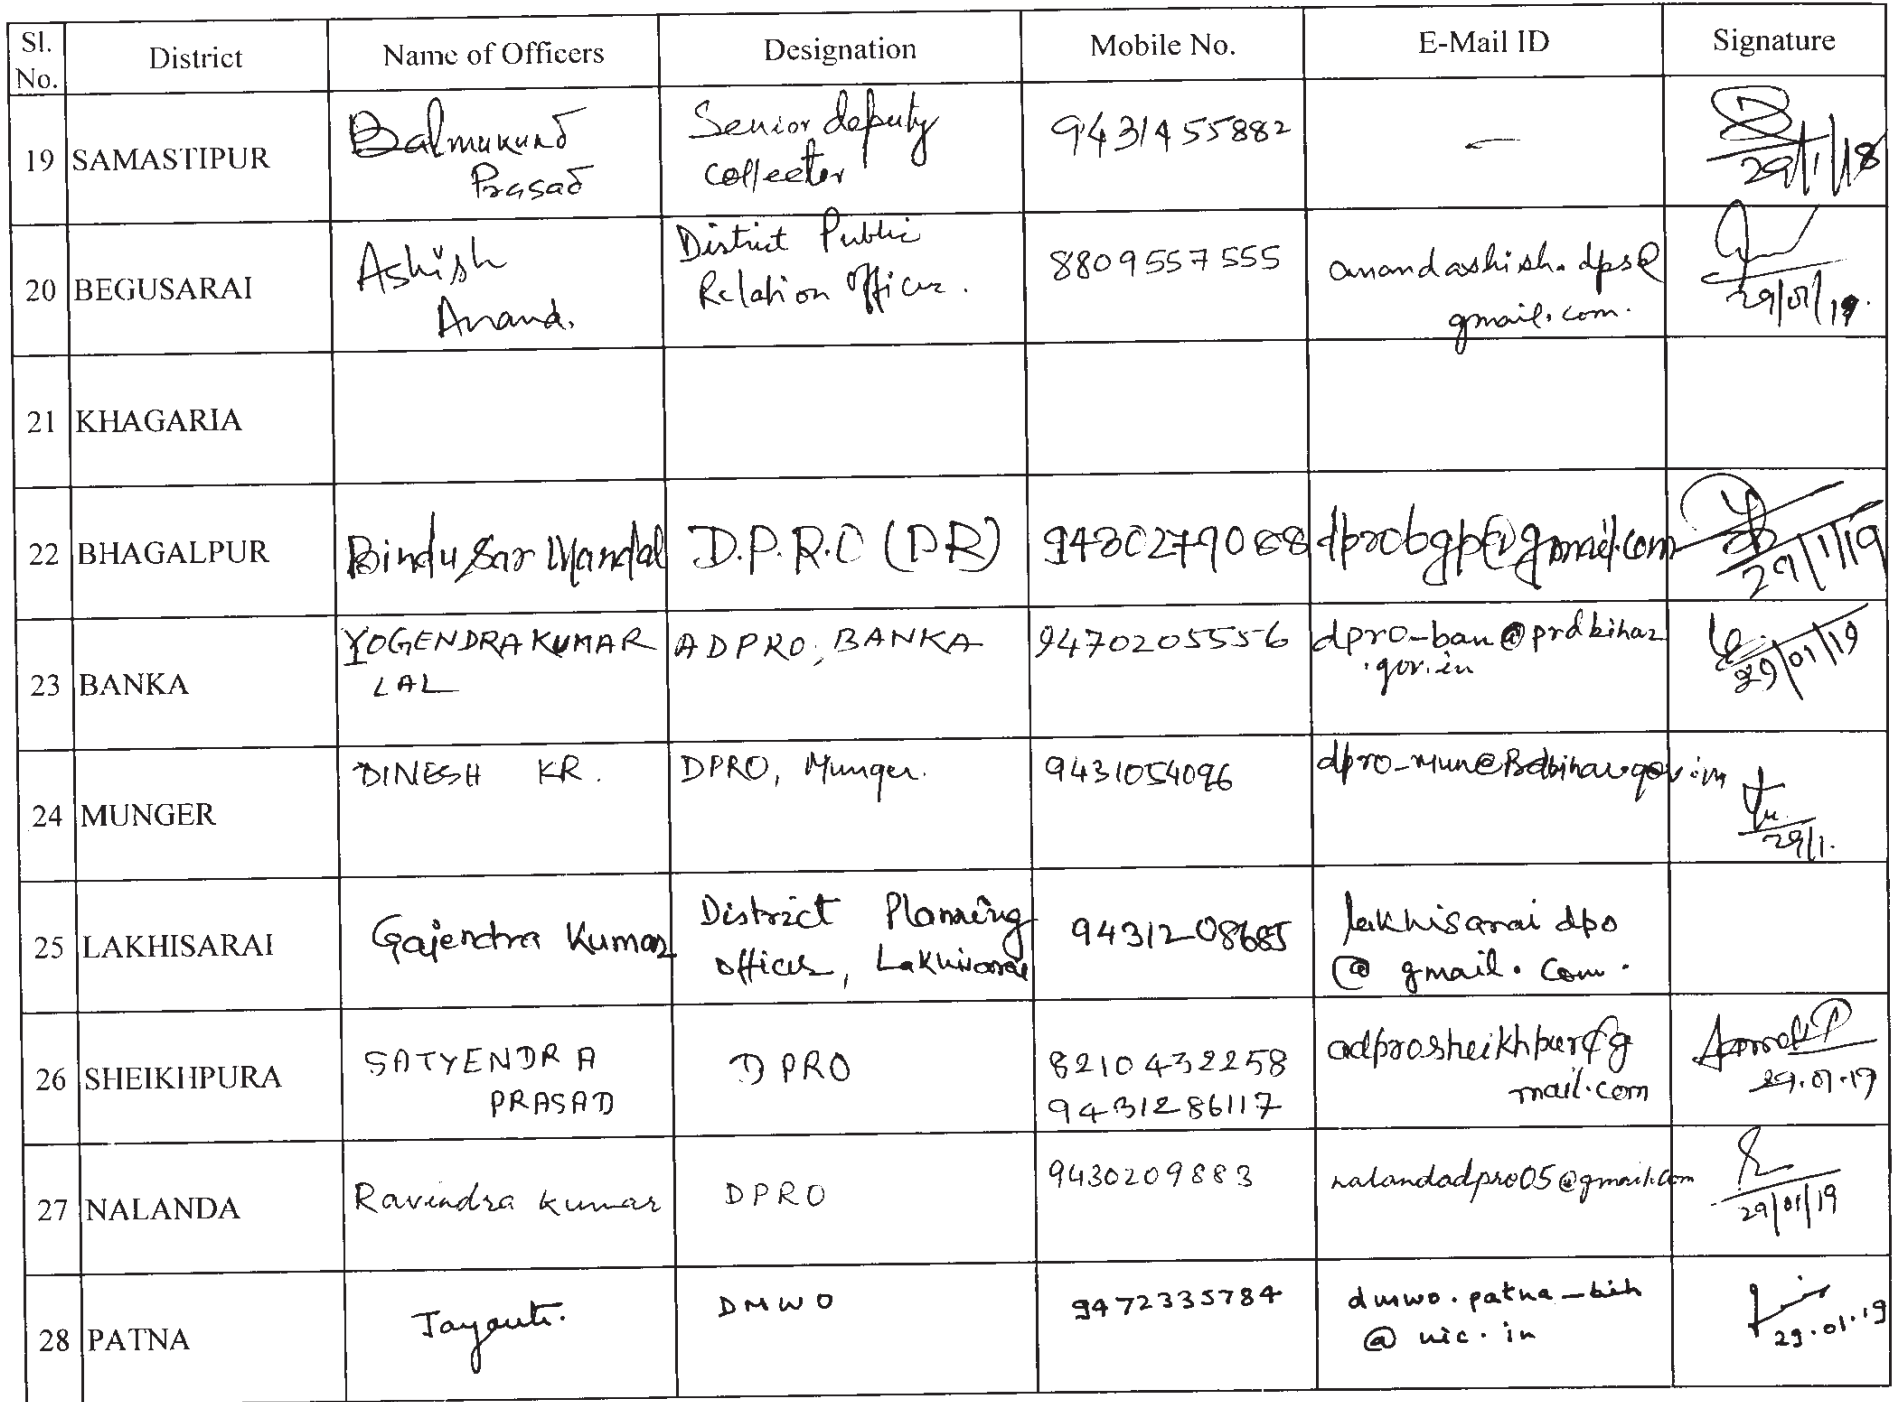 Sl. No. District Name of Officers Designation Mobile No. E-Mail ID Signature
19 SAMASTIPUR Balmukund Prasad Senior deputy collector 9431455882 — 29/1/18
20 BEGUSARAI Ashish Anand. District Public Relation Officer. 8809557555 anandashish.dps@gmail.com. 29/01/19.
21 KHAGARIA
22 BHAGALPUR Bindu Sar Mandal D.P.R.O (PR) dprobgp@gmail.com 29/1/19
23 BANKA YOGENDRA KUMAR LAL ADPRO, BANKA 9470205556 dpro-ban@prdbihar.gov.in 29/01/19
24 MUNGER DINESH KR. DPRO, Munger. 9431054096 dpro-mun@prdbihar.gov.in 29/1.
25 LAKHISARAI Gajendra Kumar District Planning officer, Lakhisarai lakhisarai dpo @ gmail.com.
26 SHEIKHPURA SATYENDRA PRASAD DPRO 8210432258 9431286117 adprosheikhpur@gmail.com 29.01.19
27 NALANDA Ravindra Kumar DPRO 9430209883 nalandadpro05@gmail.com 29/01/19
28 PATNA Jayanti. DMWO 9472335784 dmwo.patna-bih @ nic.in 29.01.19